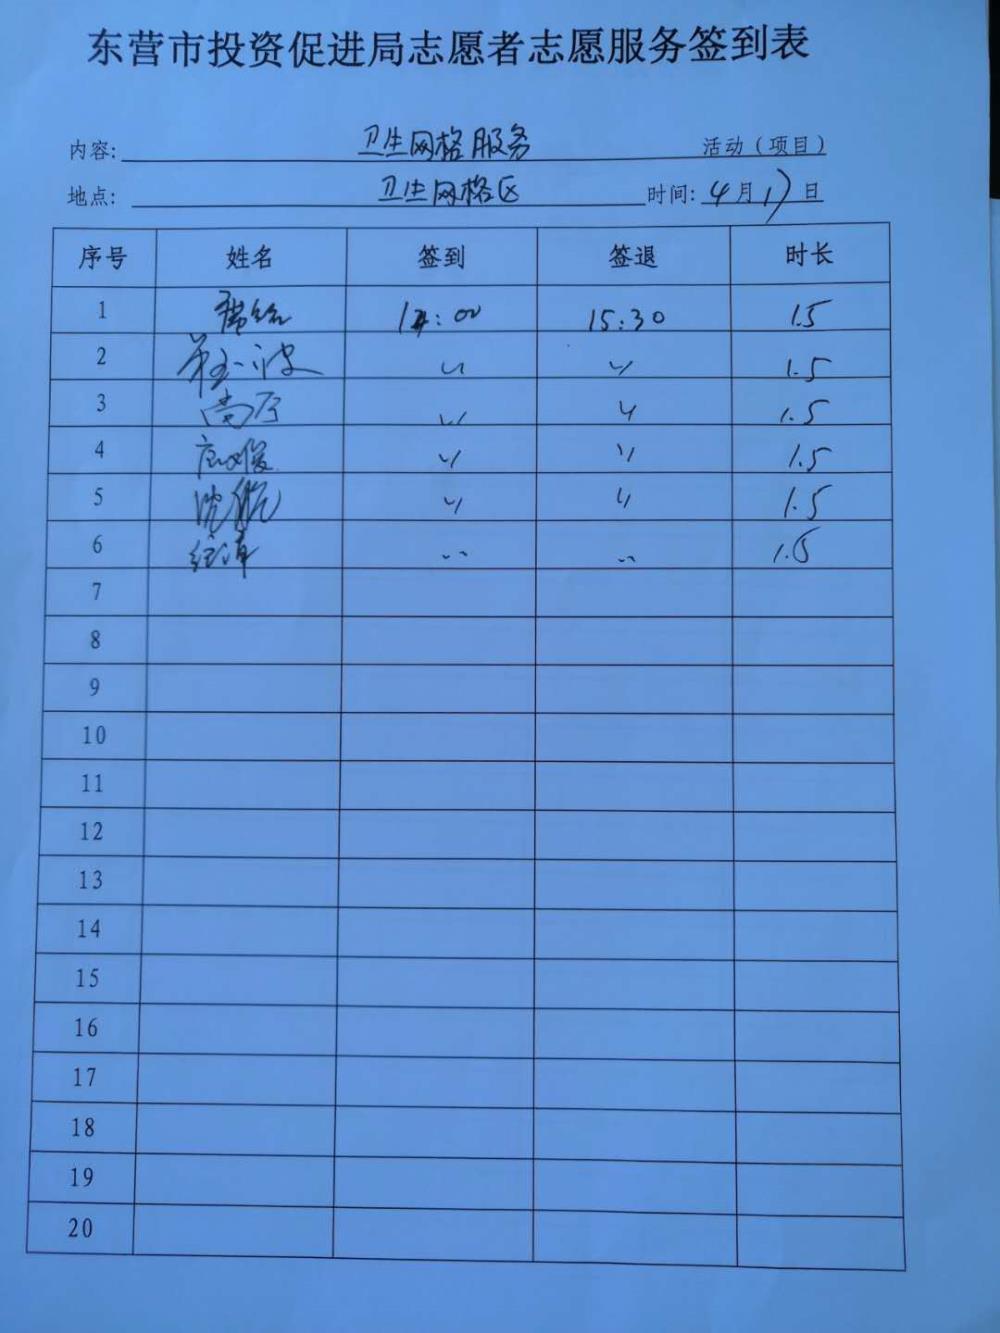 东营市投资促进局志愿者志愿服务签到表
内容: 卫生网格服务 活动（项目）
地点: 卫生网格区 时间: 4月17日
序号 姓名 签到 签退 时长
1 14:00 15:30 1.5
2 〃 〃 1.5
3 〃 〃 1.5
4 〃 〃 1.5
5 沈航 〃 〃 1.5
6 〃 〃 1.5
7
8
9
10
11
12
13
14
15
16
17
18
19
20